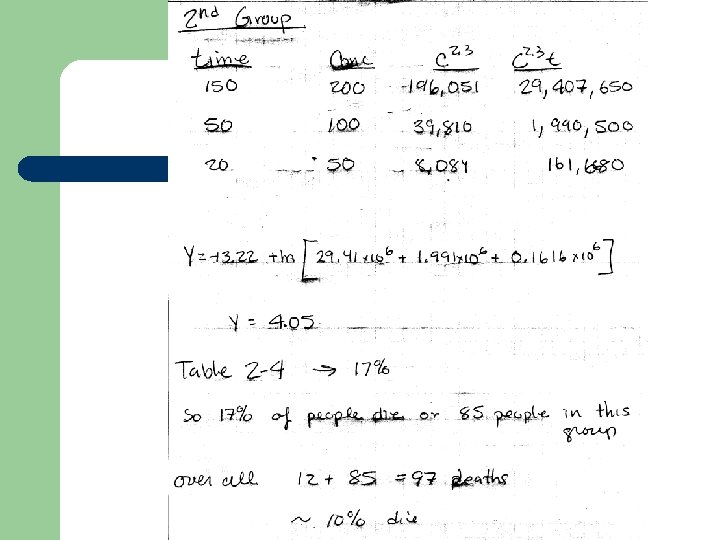 2nd Group
time Conc C^2.3 C^2.3 t
150 200 196,051 29,407,650
50 100 39,810 1,990,500
20 50 8,084 161,680
Y = -13.22 + ln [29.41x10^6 + 1.991x10^6 + 0.1616x10^6]
Y = 4.05
Table 2-4 → 17%
So 17% of people die or 85 people in this
group
over all 12 + 85 = 97 deaths
~ 10% die